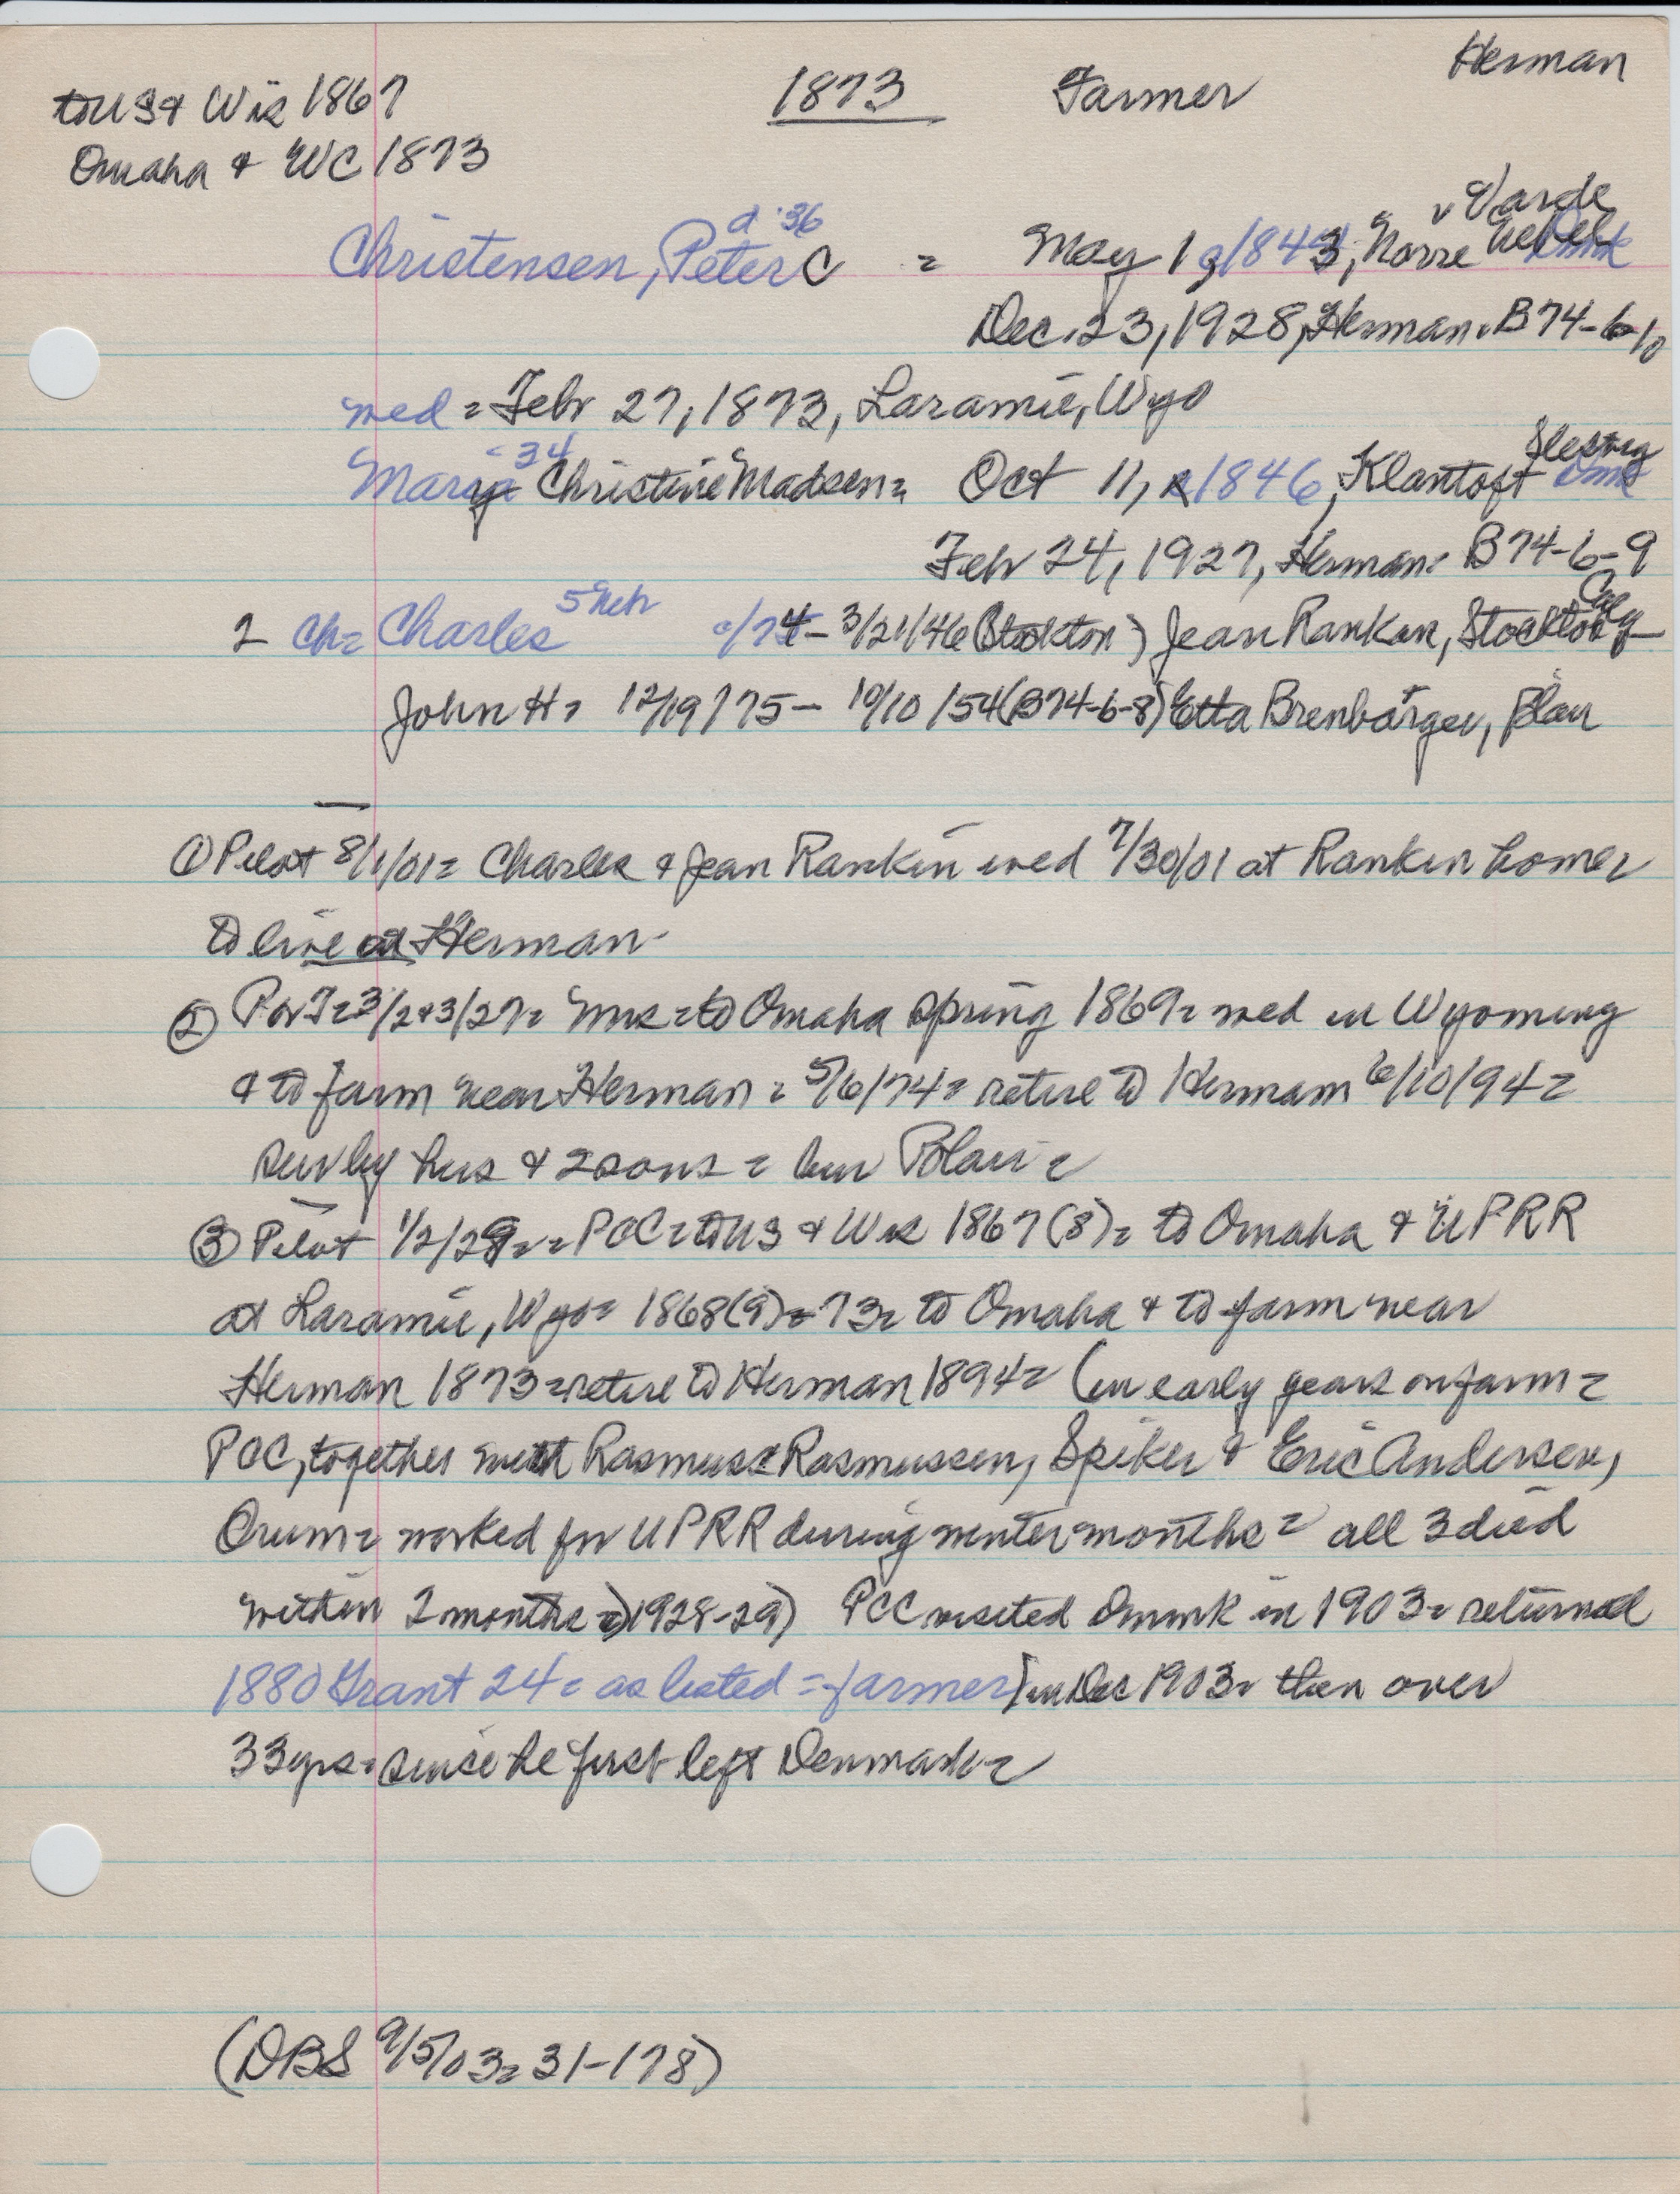 Herman
to US & Wis 1867 1873 Farmer
Omaha & WC 1873
v Varde
d '36
Christensen, Peter C = May 1, 1843, Norre
Dec. 23, 1928, Herman. B74-6-10
wed = Febr 27, 1873, Laramie, Wyo
34 Slesvig
Mary Christine Madsen = Oct 11, 1846, Klantoft
Feb 24, 1927, Herman = B74-6-9
5 Neb
2 ch = Charles c/74 - 3/21/46 (Stockton) Jean Rankin, Stockton, Cal
John H = 12/19/75 - 10/10/54 (B74-6-8) Etta Brenbarger, Blair
① Pilot 8/1/01 = Charles & Jean Rankin wed 7/30/01 at Rankin home =
to live at Herman -
② 3/2 & 3/27 = Mrs = to Omaha spring 1869 = wed in Wyoming
& to farm near Herman = 5/6/74 = retire to Herman 6/10/94 =
surv by hus & 2 sons = bur Blair =
③ Pilot 1/2/29 = = PCC = to US & Wis 1867 (8) = to Omaha & UPRR
at Laramie, Wyo = 1868(9) = 73 = to Omaha & to farm near
Herman 1873 = retire to Herman 1894 = (in early years on farm =
PCC, together with Rasmus Rasmussen, Spiker & Eric Andersen,
Orum = worked for UPRR during winter months = all 3 died
within 2 months = 1928-29) PCC visited Dnmrk in 1903 = returned
1880 Grant 24 = as listed = farmer) in Dec 1903 = then over
33 yrs = since he first left Denmark =
(DBS 9/5/03 = 31-178)